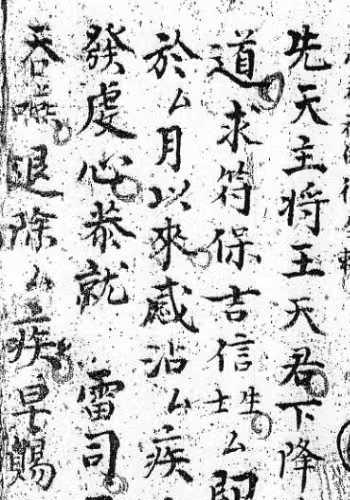 先天主将王天君下降
道求符保吉信生士厶
於厶月以來感沾厶疾
發虔心恭就 雷司
吞嚥退除厶疾早賜